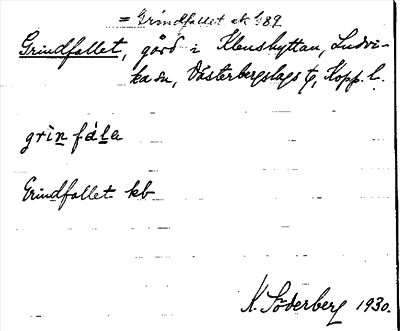 = Grindfallet ek 1:89
Grindfallet, gård i Klenshyttan, Ludvi-
ka sn, Västerbergslags tg, Kopp. l.
grìn fála
Grindfallet kb
K. Söderberg 1930.